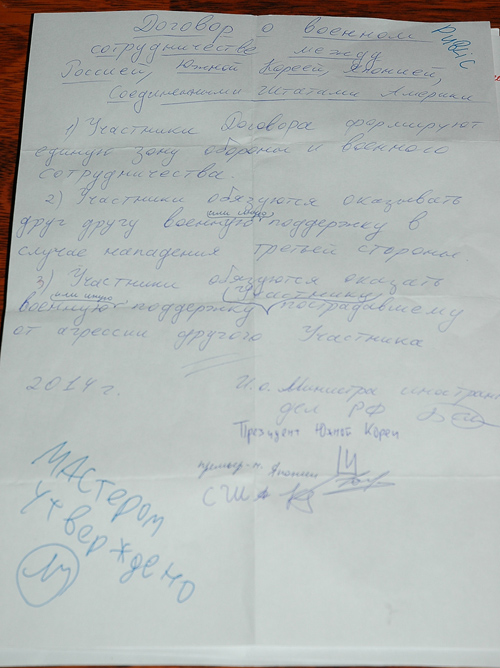 Договор о военном
Public
сотрудничестве между
Россией, Южной Кореей, Японией,
Соединенными Штатами Америки
1) Участники Договора формируют
единую зону обороны и военного
сотрудничества.
2) Участники обязуются оказывать
или иную
друг другу военную поддержку в
случае нападения третьей стороны.
3) Участники обязуются оказать
или иную Участнику
военную поддержку пострадавшему
от агрессии другого Участника
2014 г. И.о. Министра иностран
дел РФ
Президент Южной Кореи
премьер-м. Японии
США
Мастером
утверждено